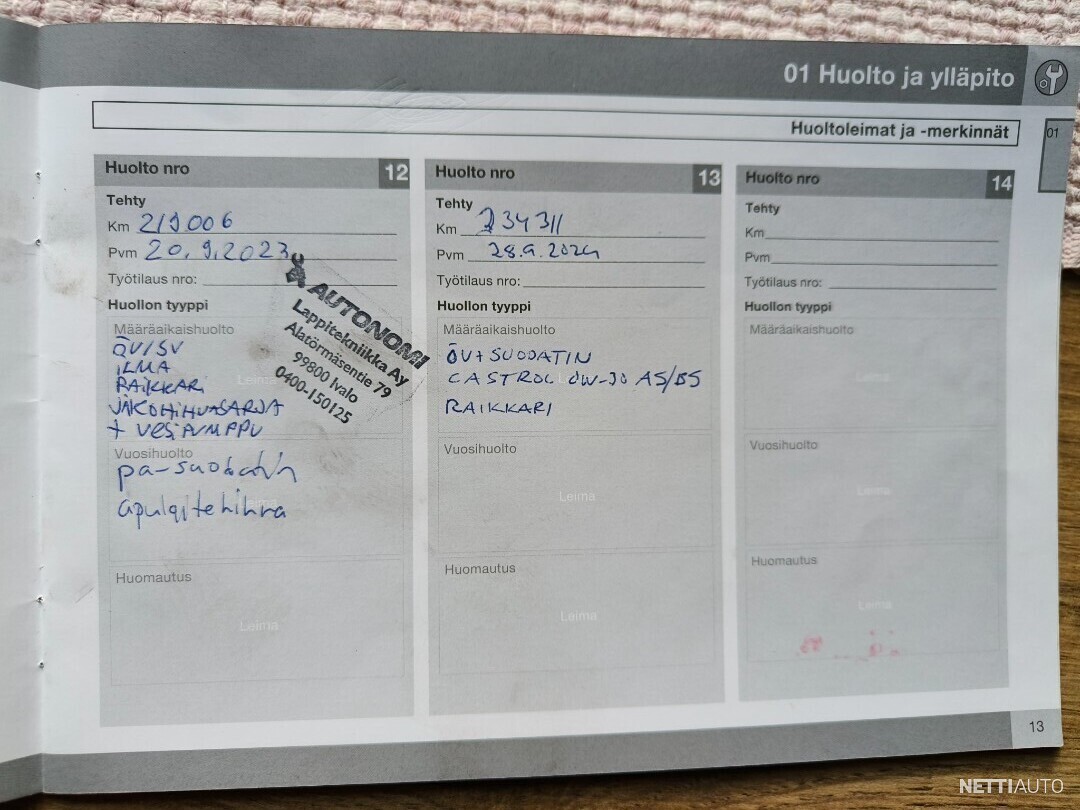 01 Huolto ja ylläpito
Huoltoleimat ja -merkinnät
01
Huolto nro 12
Tehty
Km 219006
Pvm 20.9.2023
Työtilaus nro:
Huollon tyyppi
Määräaikaishuolto
ÖV/SV
ILMA
RAIKKARI
JAKOHIHNASARJA
+ VESIPUMPPU
Vuosihuolto
pa-suodatin
apulaitehihna
Leima
Huomautus
Leima
AUTONOMI
Lappitekniikka Ay
Alatörmäsentie 79
99800 Ivalo
0400-150125
Huolto nro 13
Tehty
Km 234311
Pvm 28.9.2024
Työtilaus nro:
Huollon tyyppi
Määräaikaishuolto
ÖV+SUODATIN
CASTROL 0W-30 A5/B5
RAIKKARI
Vuosihuolto
Leima
Huomautus
Leima
Huolto nro 14
Tehty
Km
Pvm
Työtilaus nro:
Huollon tyyppi
Määräaikaishuolto
Leima
Vuosihuolto
Leima
Huomautus
Leima
13
NETTIAUTO